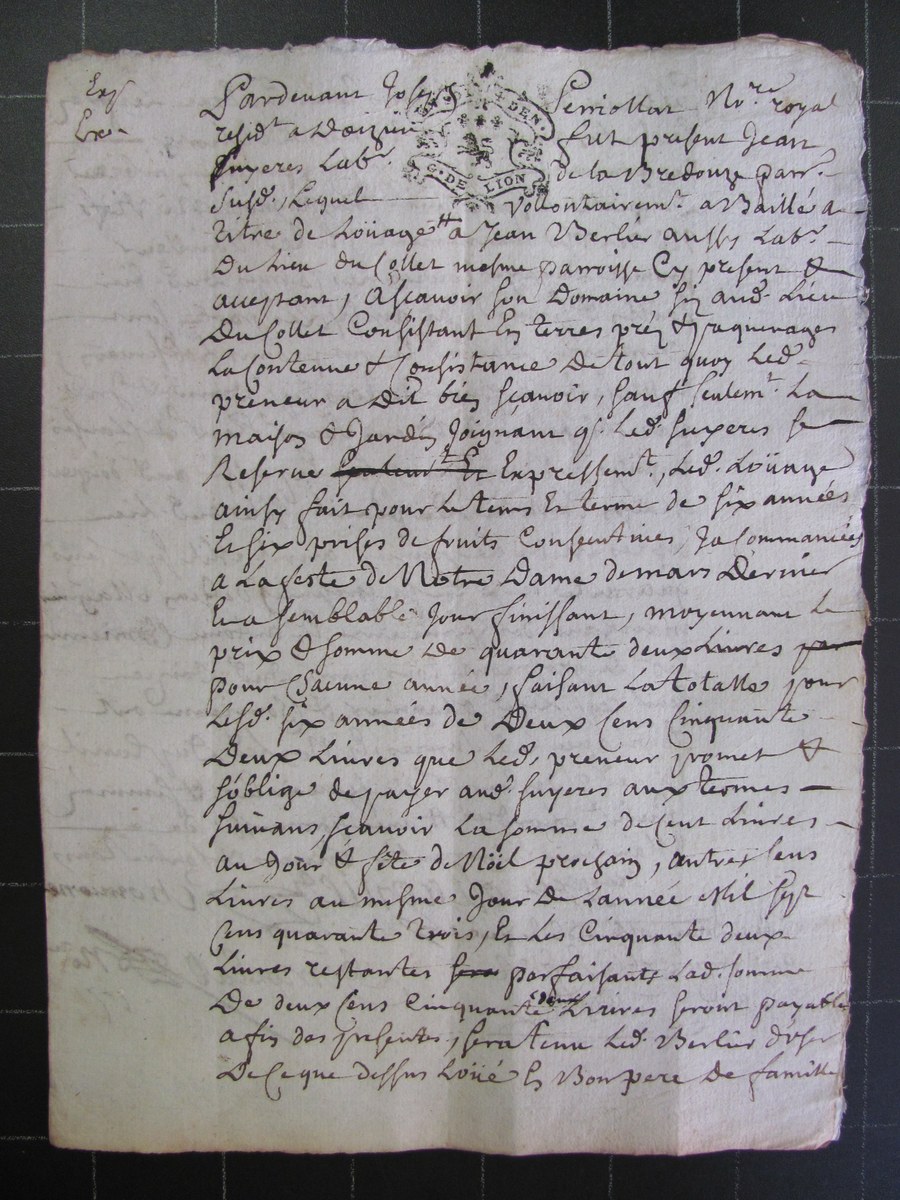 Pardevant Joseph Perriollat No.re royal
resid.t a Doizieu fut present Jean
Suyeres Lab.r de la Bredouze parr.
G. DE LION
Susd., Lequel vollontairem.t a Baillé a
titre de Loüage a Jean Berlier aussy Lab.r
Du Lieu du Collet mesme parroisse Cy present &
acceptant, Ascavoir son Domaine sis aud. Lieu
Du Collet Consistant En terres préz & paquerages
La Contenue & Consistance De tout quoy Led.
preneur a Dit bien sçavoir, sauf seulem.t La
maison & Jardin Joignant q. Led. Suyeres se
Reserve Expressem.t, Led. Loüage
ainsy fait pour Le tems Et terme de six années
Et six prises de fruits Consecutives, Ja Commancées
a La feste de Notre Dame de mars Dernier
Et a semblable Jour finissant, moyennant Le
prix & somme de quarante deux Livres
pour Chacune année, faisant La totalle pour
Lesd. six années de Deux Cens Cinquante
Deux Livres que Led. preneur promet &
s'oblige de payer aud. Suyeres aux termes
suivans, sçavoir La somme de Cent Livres
au Jour & fête de Nöel prochain, autres Cens
Livres au mesme Jour De Lannée Mil sept
Cens quarante trois, Et Les Cinquante deux
Livres restantes parfaisants Lad. somme
De deux Cens Cinquante deux Livres seront payables
a fin des presentes, sera tenu Led. Berlier d'user
De Ce que dessus Loüé En Bon pere De famille